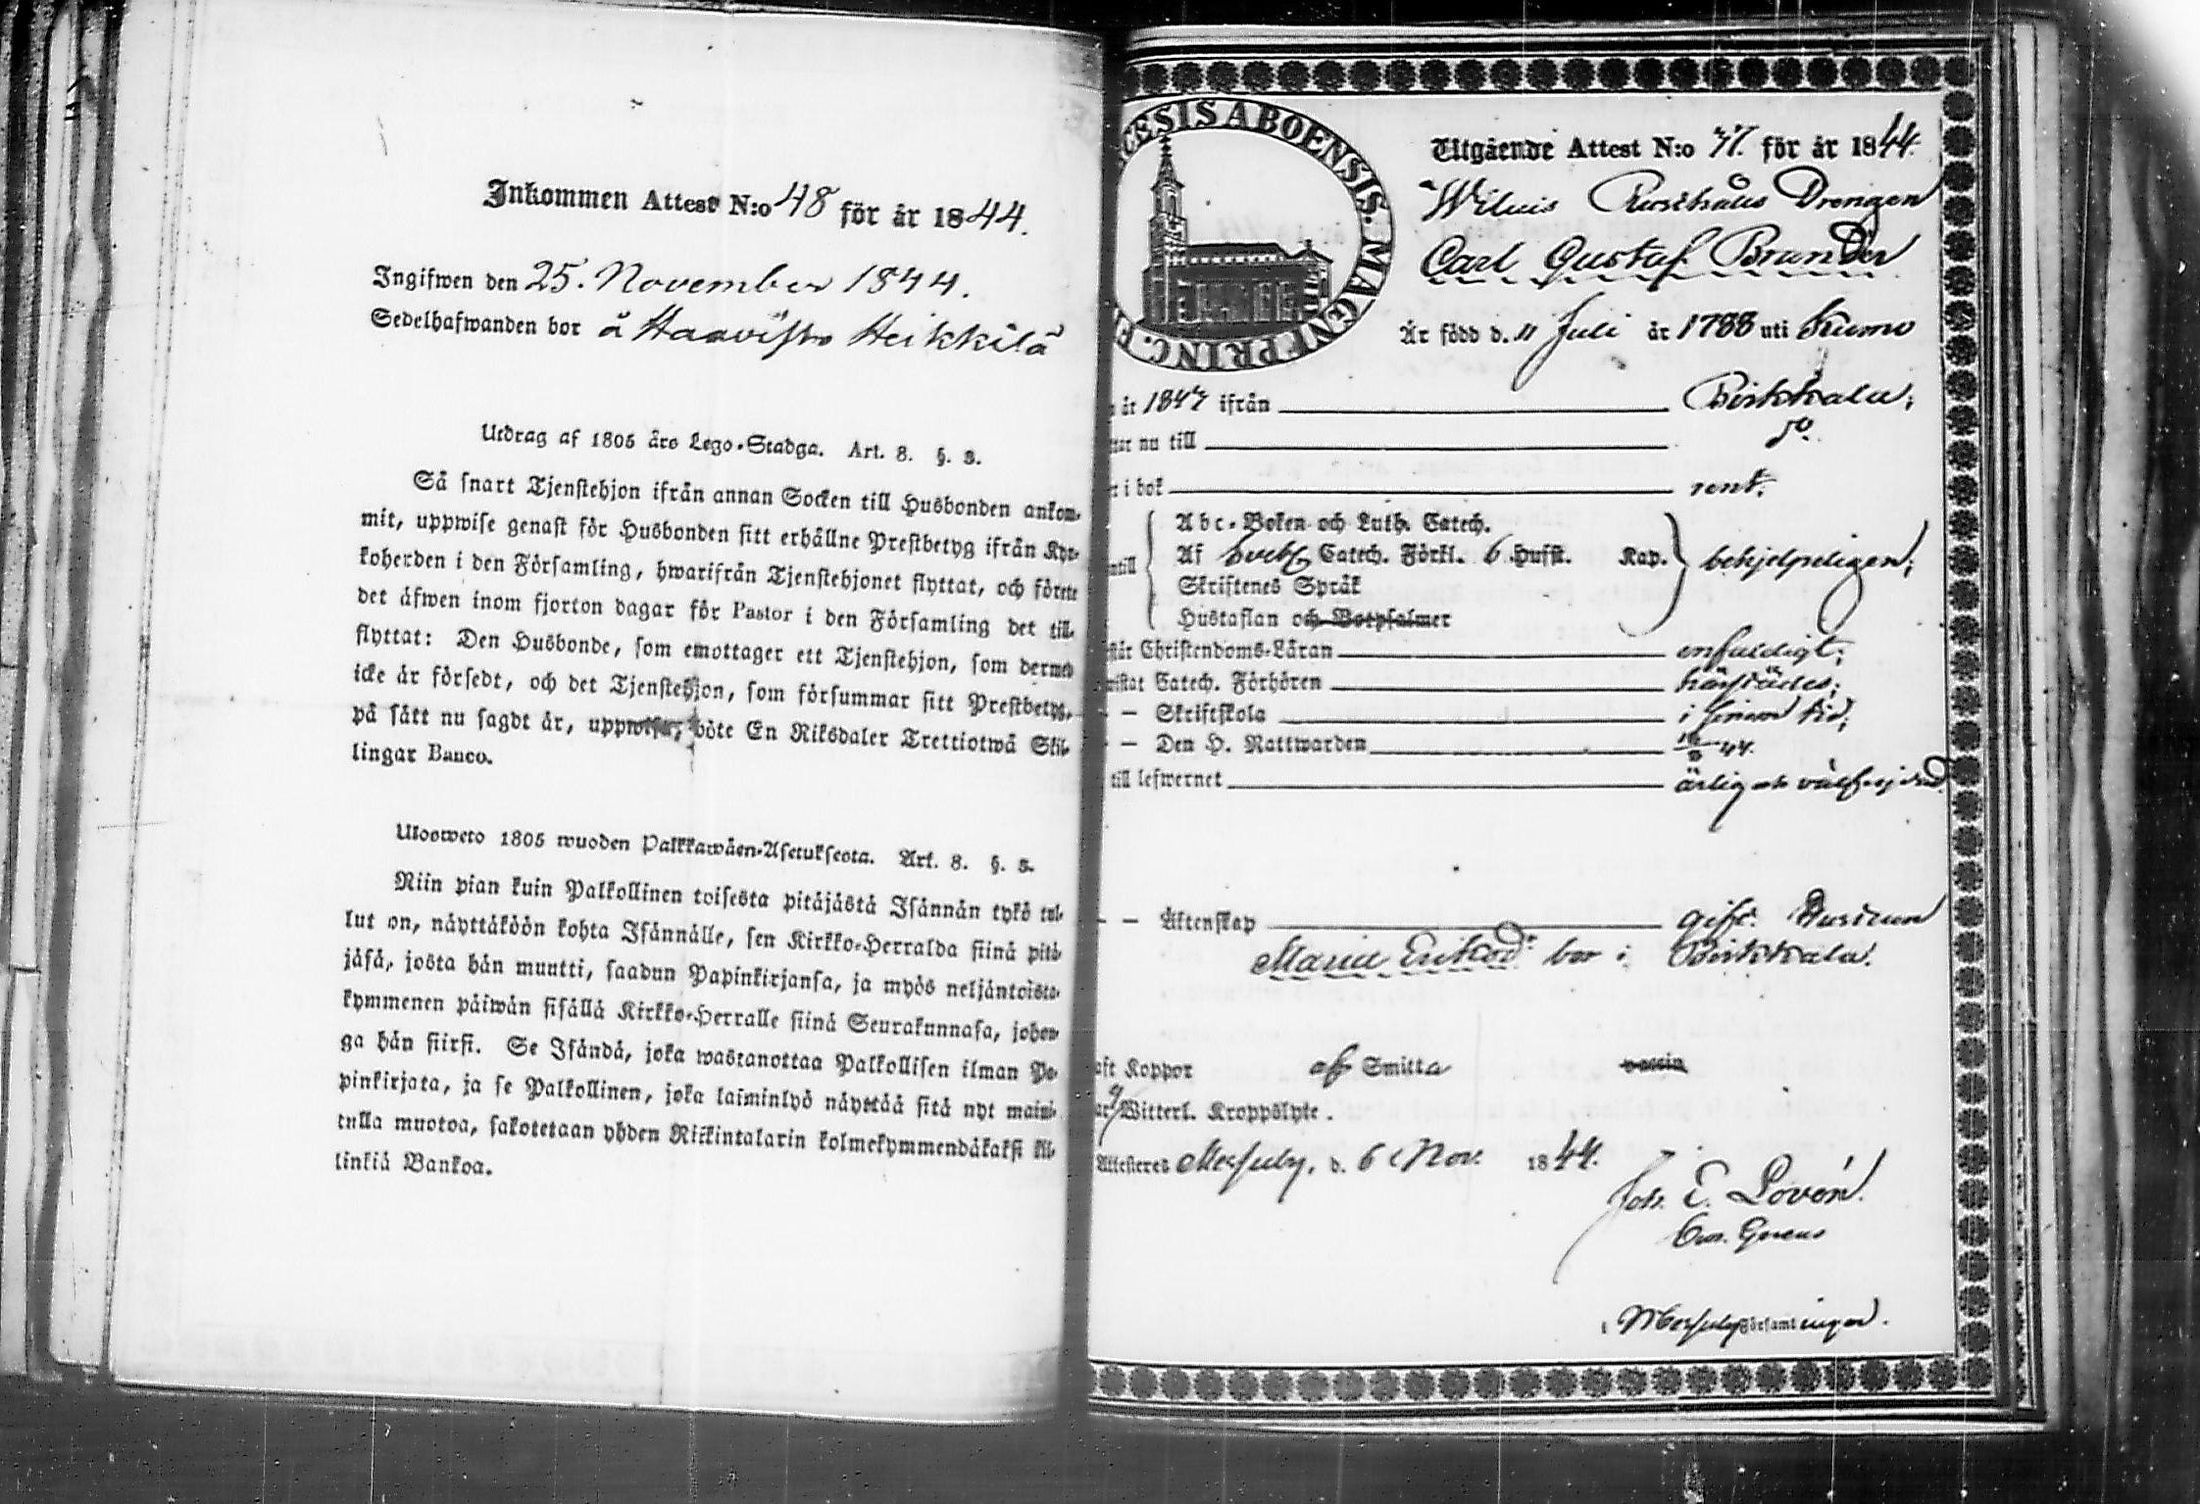 Inkommen Attest N:o 48 för år 1844.
Ingifwen den 25. November 1844.
Sedelhafwanden bor å Haavisto Heikkilä
Utdrag af 1805 års Lego-Stadga. Art. 8. §. 3.
Så snart Tjenstehjon ifrån annan Socken till Husbonden ankom-
mit, uppwise genast för Husbonden sitt erhållne Prestbetyg ifrån Kyr-
koherden i den Församling, hwarifrån Tjenstehjonet flyttat, och förete
det äfwen inom fjorton dagar för Pastor i den Församling det till-
flyttat: Den Husbonde, som emottager ett Tjenstehjon, som dermed
icke är försedt, och det Tjenstehjon, som försummar sitt Prestbetyg,
på sätt nu sagdt är, uppwisa, böte En Riksdaler Trettiotwå Skil-
lingar Banco.
Ulosweto 1805 wuoden Palkkawäen-Asetuksesta. Art. 8. §. 3.
Niin pian kuin Palkollinen toisesta pitäjästä Isännän tykö tul-
lut on, näyttäköön kohta Isännälle, sen Kirkko-Herralda siinä pitä-
jäsä, josta hän muutti, saadun Papinkirjansa, ja myös neljäntoista-
kymmenen päiwän sisällä Kirkko-Herralle siinä Seurakunnasa, johon-
ga hän siirsi. Se Isändä, joka wastanottaa Palkollisen ilman Pa-
pinkirjata, ja se Palkollinen, joka laiminlyö näyttää sitä nyt maini-
tulla muotoa, sakotetaan yhden Riikintalarin kolmekymmendäkaksi kil-
linkiä Bankoa.
CESIS ABOENSIS. MAGNI PRINC. F
Utgående Attest N:o 47. för år 1844.
Rusthålls Drengen
Carl Gustaf Brander
Är född d. 11 Juli år 1788 uti Kumo
år 1844 ifrån Birkkala;
nu till do.
i bok rent;
Abc-Boken och Luth. Catech.
Af Svebg Catech. Förkl. 6 Hufst. Kap. behjelpeligen;
Skriftenes Språk
Hustaflan och Botpsalmer
står Christendoms-Läran enfaldigt;
wistat Catech. Förhören härstädes;
— Skriftskola i sinom tid;
— Den H. Nattwarden 44.
till lefwernet ärlig och välfrejdad.
— — Äktenskap gift. Hustrun
Maria Eriksdr bor i Birkkala.
aft Koppor af Smitta vaccin
Witterl. Kroppslyte.
Attesteres d. 6 Nov. 1844.
Joh. E. Lovén.
i Församlingen.